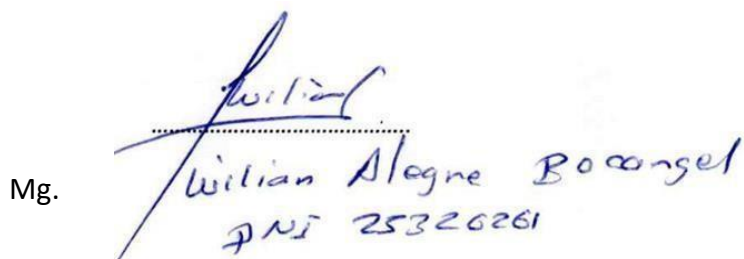 Wilian
Mg. Wilian Alegre Bocangel
DNI 25326261